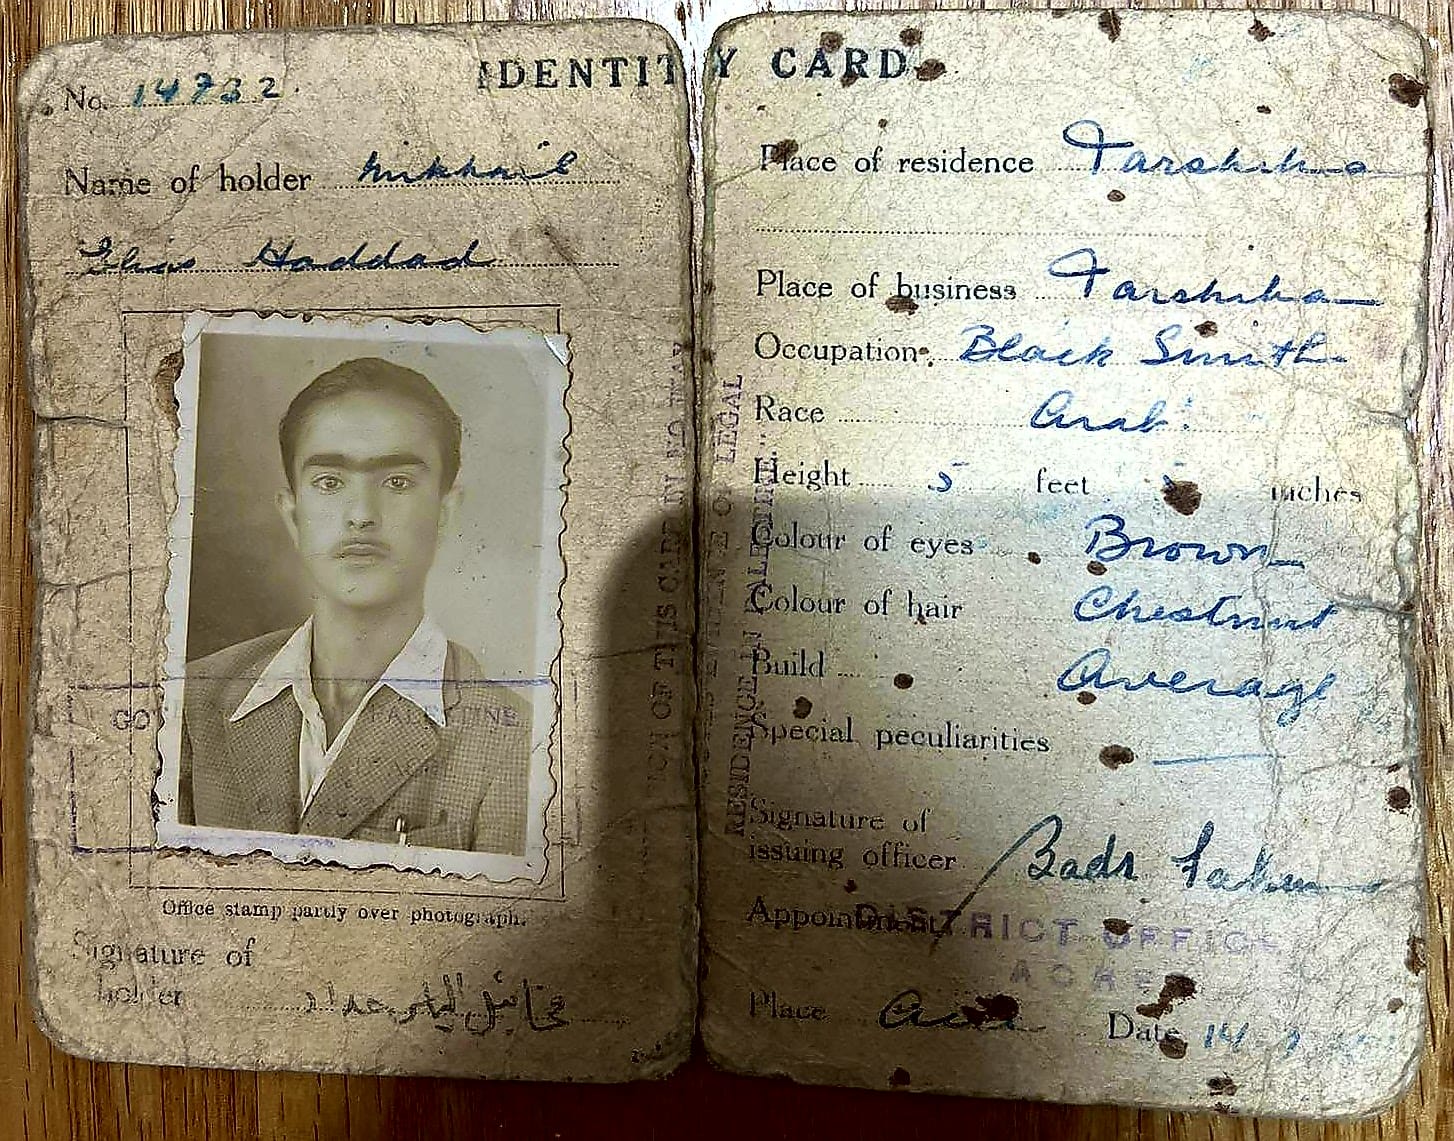 IDENTITY CARD
No. 14732.
Name of holder Mikhail
Elias Haddad
PALESTINE
Office stamp partly over photograph.
Signature of
holder مخائيل الياس حداد
Place of residence Tarshiha
Place of business Tarshiha
Occupation Black Smith
Race Arab.
Height 5 feet inches
Colour of eyes Brown
Colour of hair Chestnut
Build Average
Special peculiarities —
Signature of
issuing officer Badr
Appointment DISTRICT OFFICE
ACRE
Place Acre Date 14
OF THIS CARD IN NO WAY
OF LEGAL
RESIDENCE IN PALESTINE